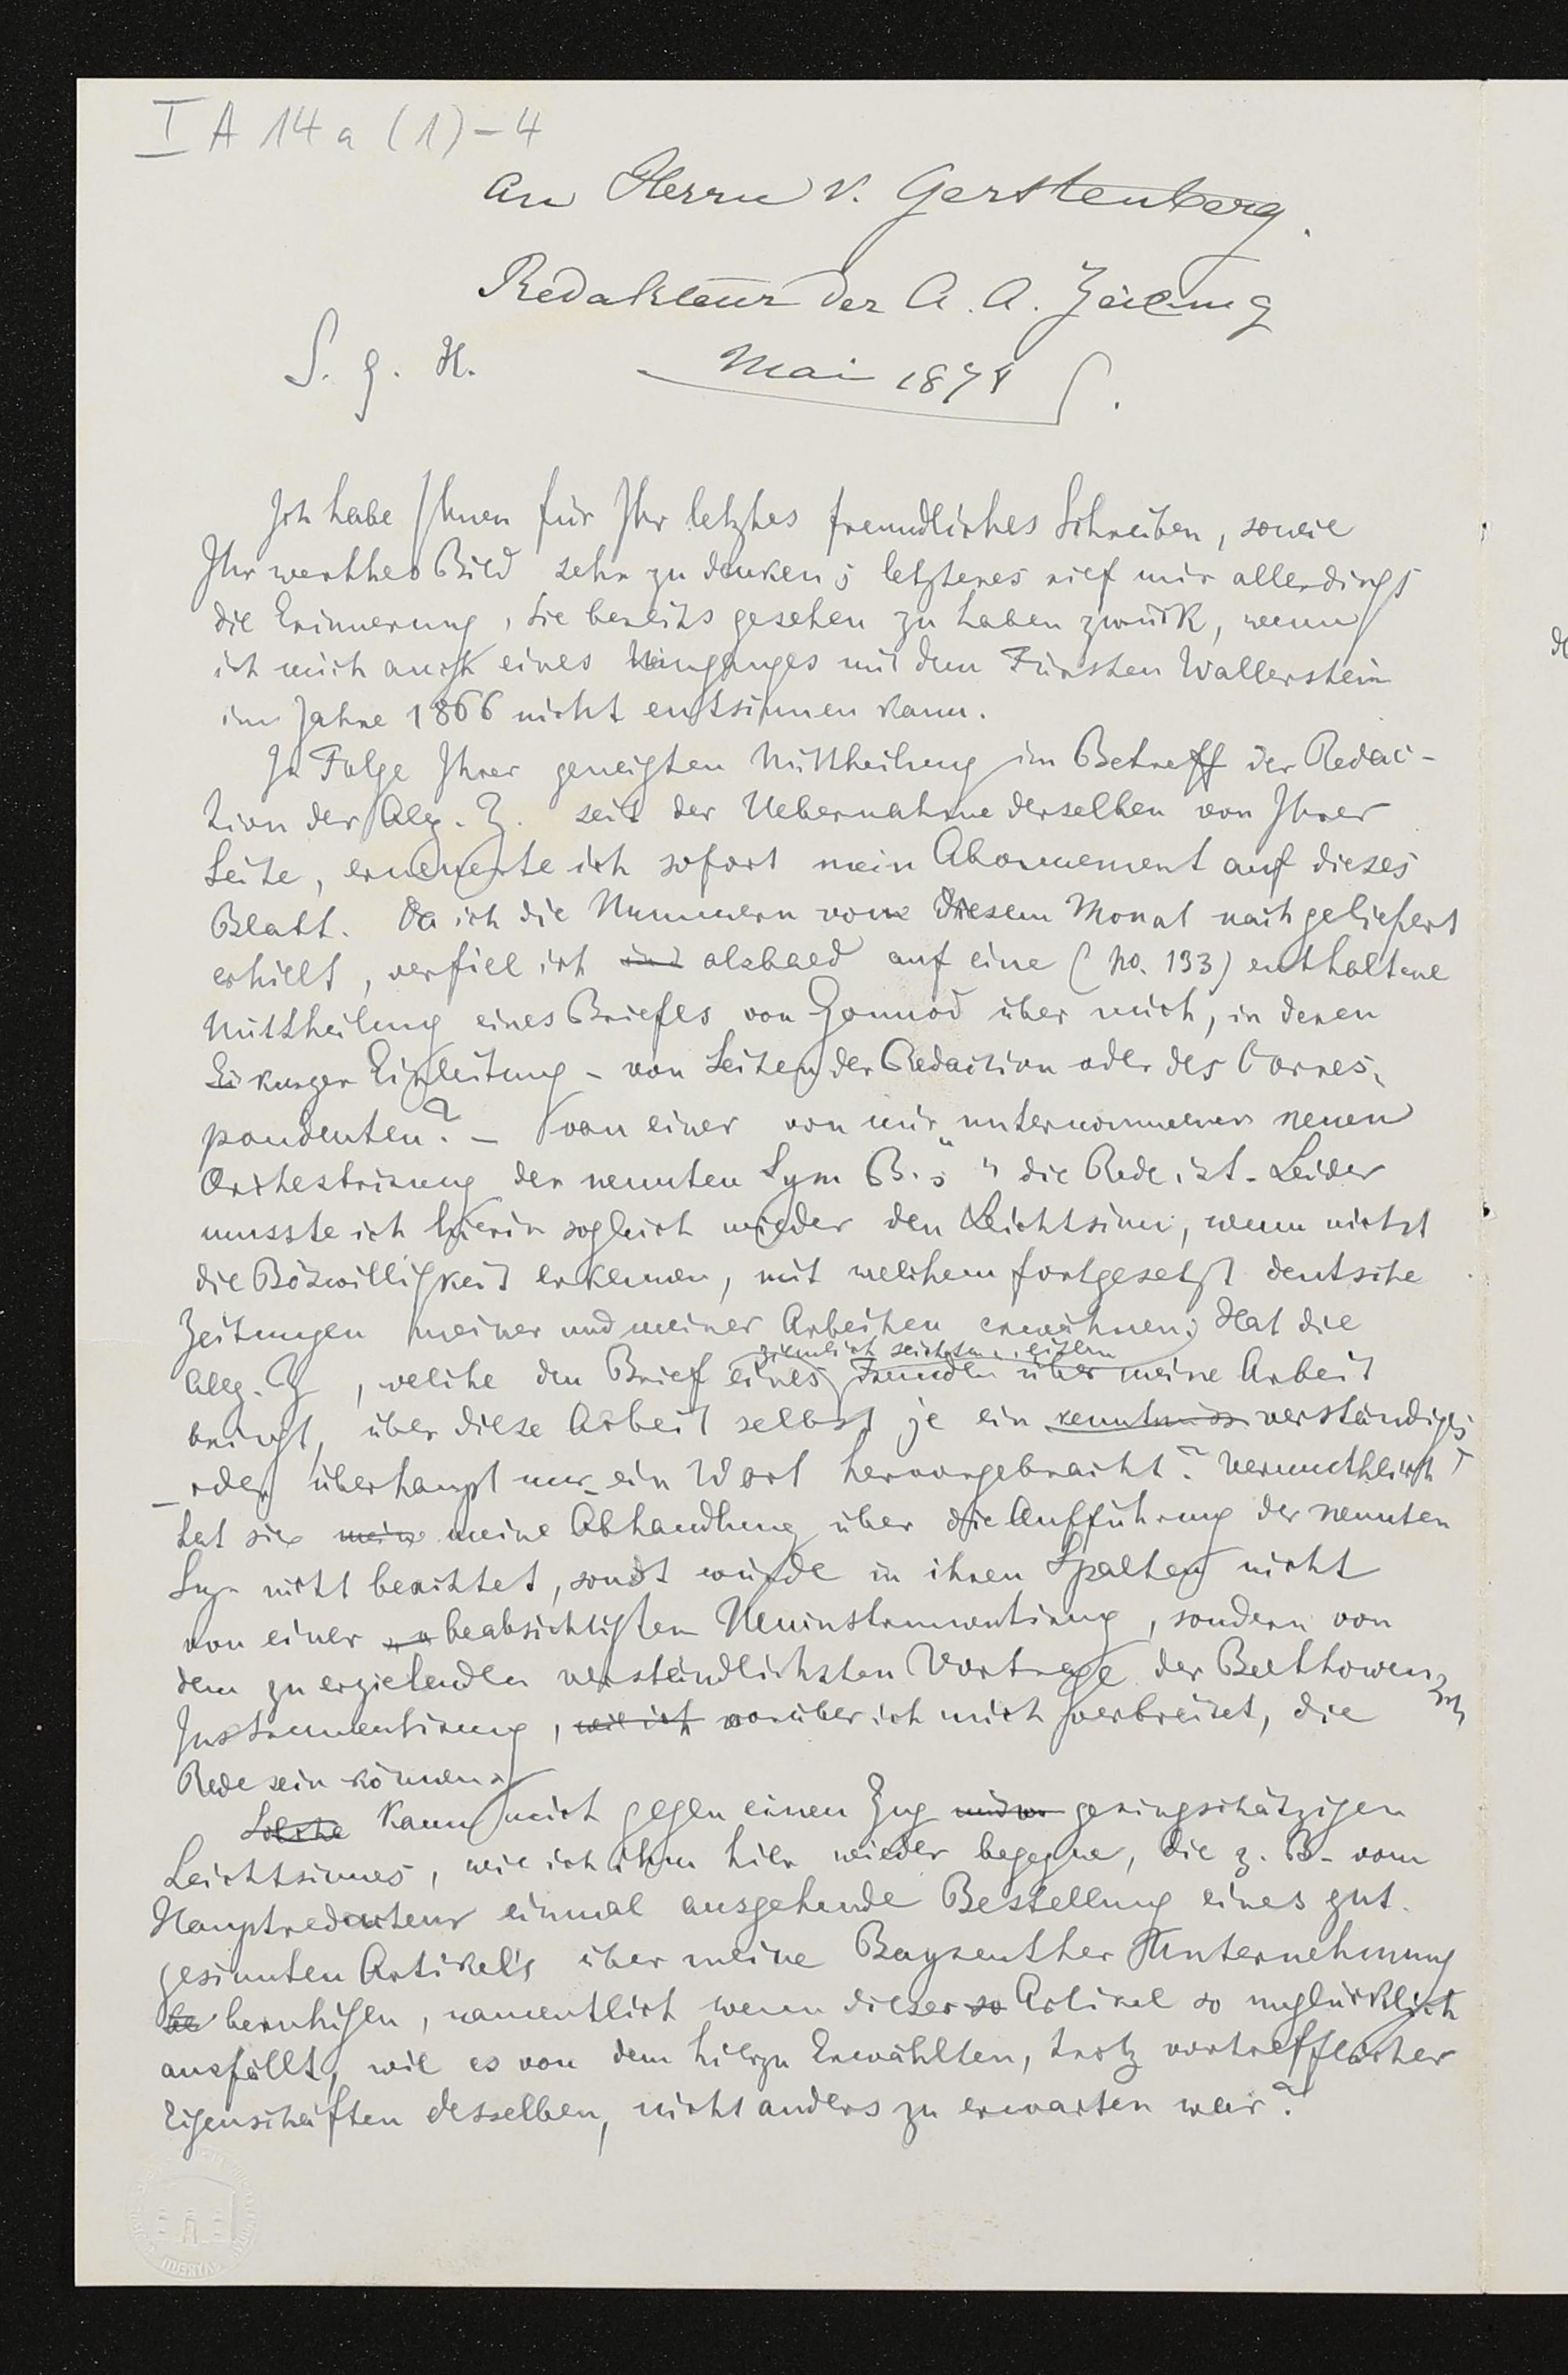 I A 14a (1)-4
An Herrn v. Gerstenberg.
Redakteur der A. A. Zeitung
S. g. H.
Mai 1874
Ich habe Ihnen für Ihr letztes freundliches Schreiben, sowie
Ihr werthes Bild sehr zu danken; letzteres rief mir allerdings
die Erinnerung, Sie bereits gesehen zu haben zurück, wenn
ich mich auch eines Umganges mit dem Fürsten Wallerstein
im Jahre 1866 nicht entsinnen kann.
In Folge Ihrer geneigten Mittheilung im Betreff der Redac-
tion der Allg. Z. seit der Uebernahme derselben von Ihrer
Seite, erneuerte ich sofort mein Abonnement auf dieses
Blatt. Da ich die Nummern vom diesem Monat nachgeliefert
erhielt, verfiel ich alsbald auf eine (No. 133) enthaltene
Mittheilung eines Briefes von Gounod über mich, in deren
Ei kurzer Einleitung - von Seiten der Redaction oder des Corres-
pondenten? - von einer von mir "unternommenen neuen
Orchestrirung der neunten Sym B.s" die Rede ist. Leider
musste ich hierin sogleich wieder den Leichtsinn, wenn nicht
die Böswilligkeit erkennen, mit welchem fortgesetzt deutsche
Zeitungen meiner und meiner Arbeiten erwähnen; Hat die
ziemlich seichten
Allg. Z, welche den Brief eines Fremden über meine Arbeit
bringt, über diese Arbeit selbst je ein kenntniss verständiges
- oder überhaupt nur ein Wort hervorgebracht? Vermuthlich
hat sie meine meine Abhandlung über die Aufführung der neunten
Sy- nicht beachtet, sonst würde in ihren Spalten nicht
von einer beabsichtigten Neuinstrumentirung, sondern von
dem zu erzielenden verständlichsten Vortrage der Beethowen
Instrumentirung, wie ich worüber ich mich verbreitet, die
Rede sein können.
Solche Kann mich gegen einen Zug geringschätzigen
Leichtsinnes, wie ich ihm hier wieder begegne, die z. B. vom
Hauptredacteur einmal ausgehende Bestellung eines gut-
gesinnten Artikel's über meine Bayreuther Unternehmung
be beruhigen, namentlich wenn dieser so Artikel so unglücklich
ausfällt, wie es von dem hierzu Erwählten, trotz vortrefflicher
Eigenschaften desselben, nicht anders zu erwarten war?